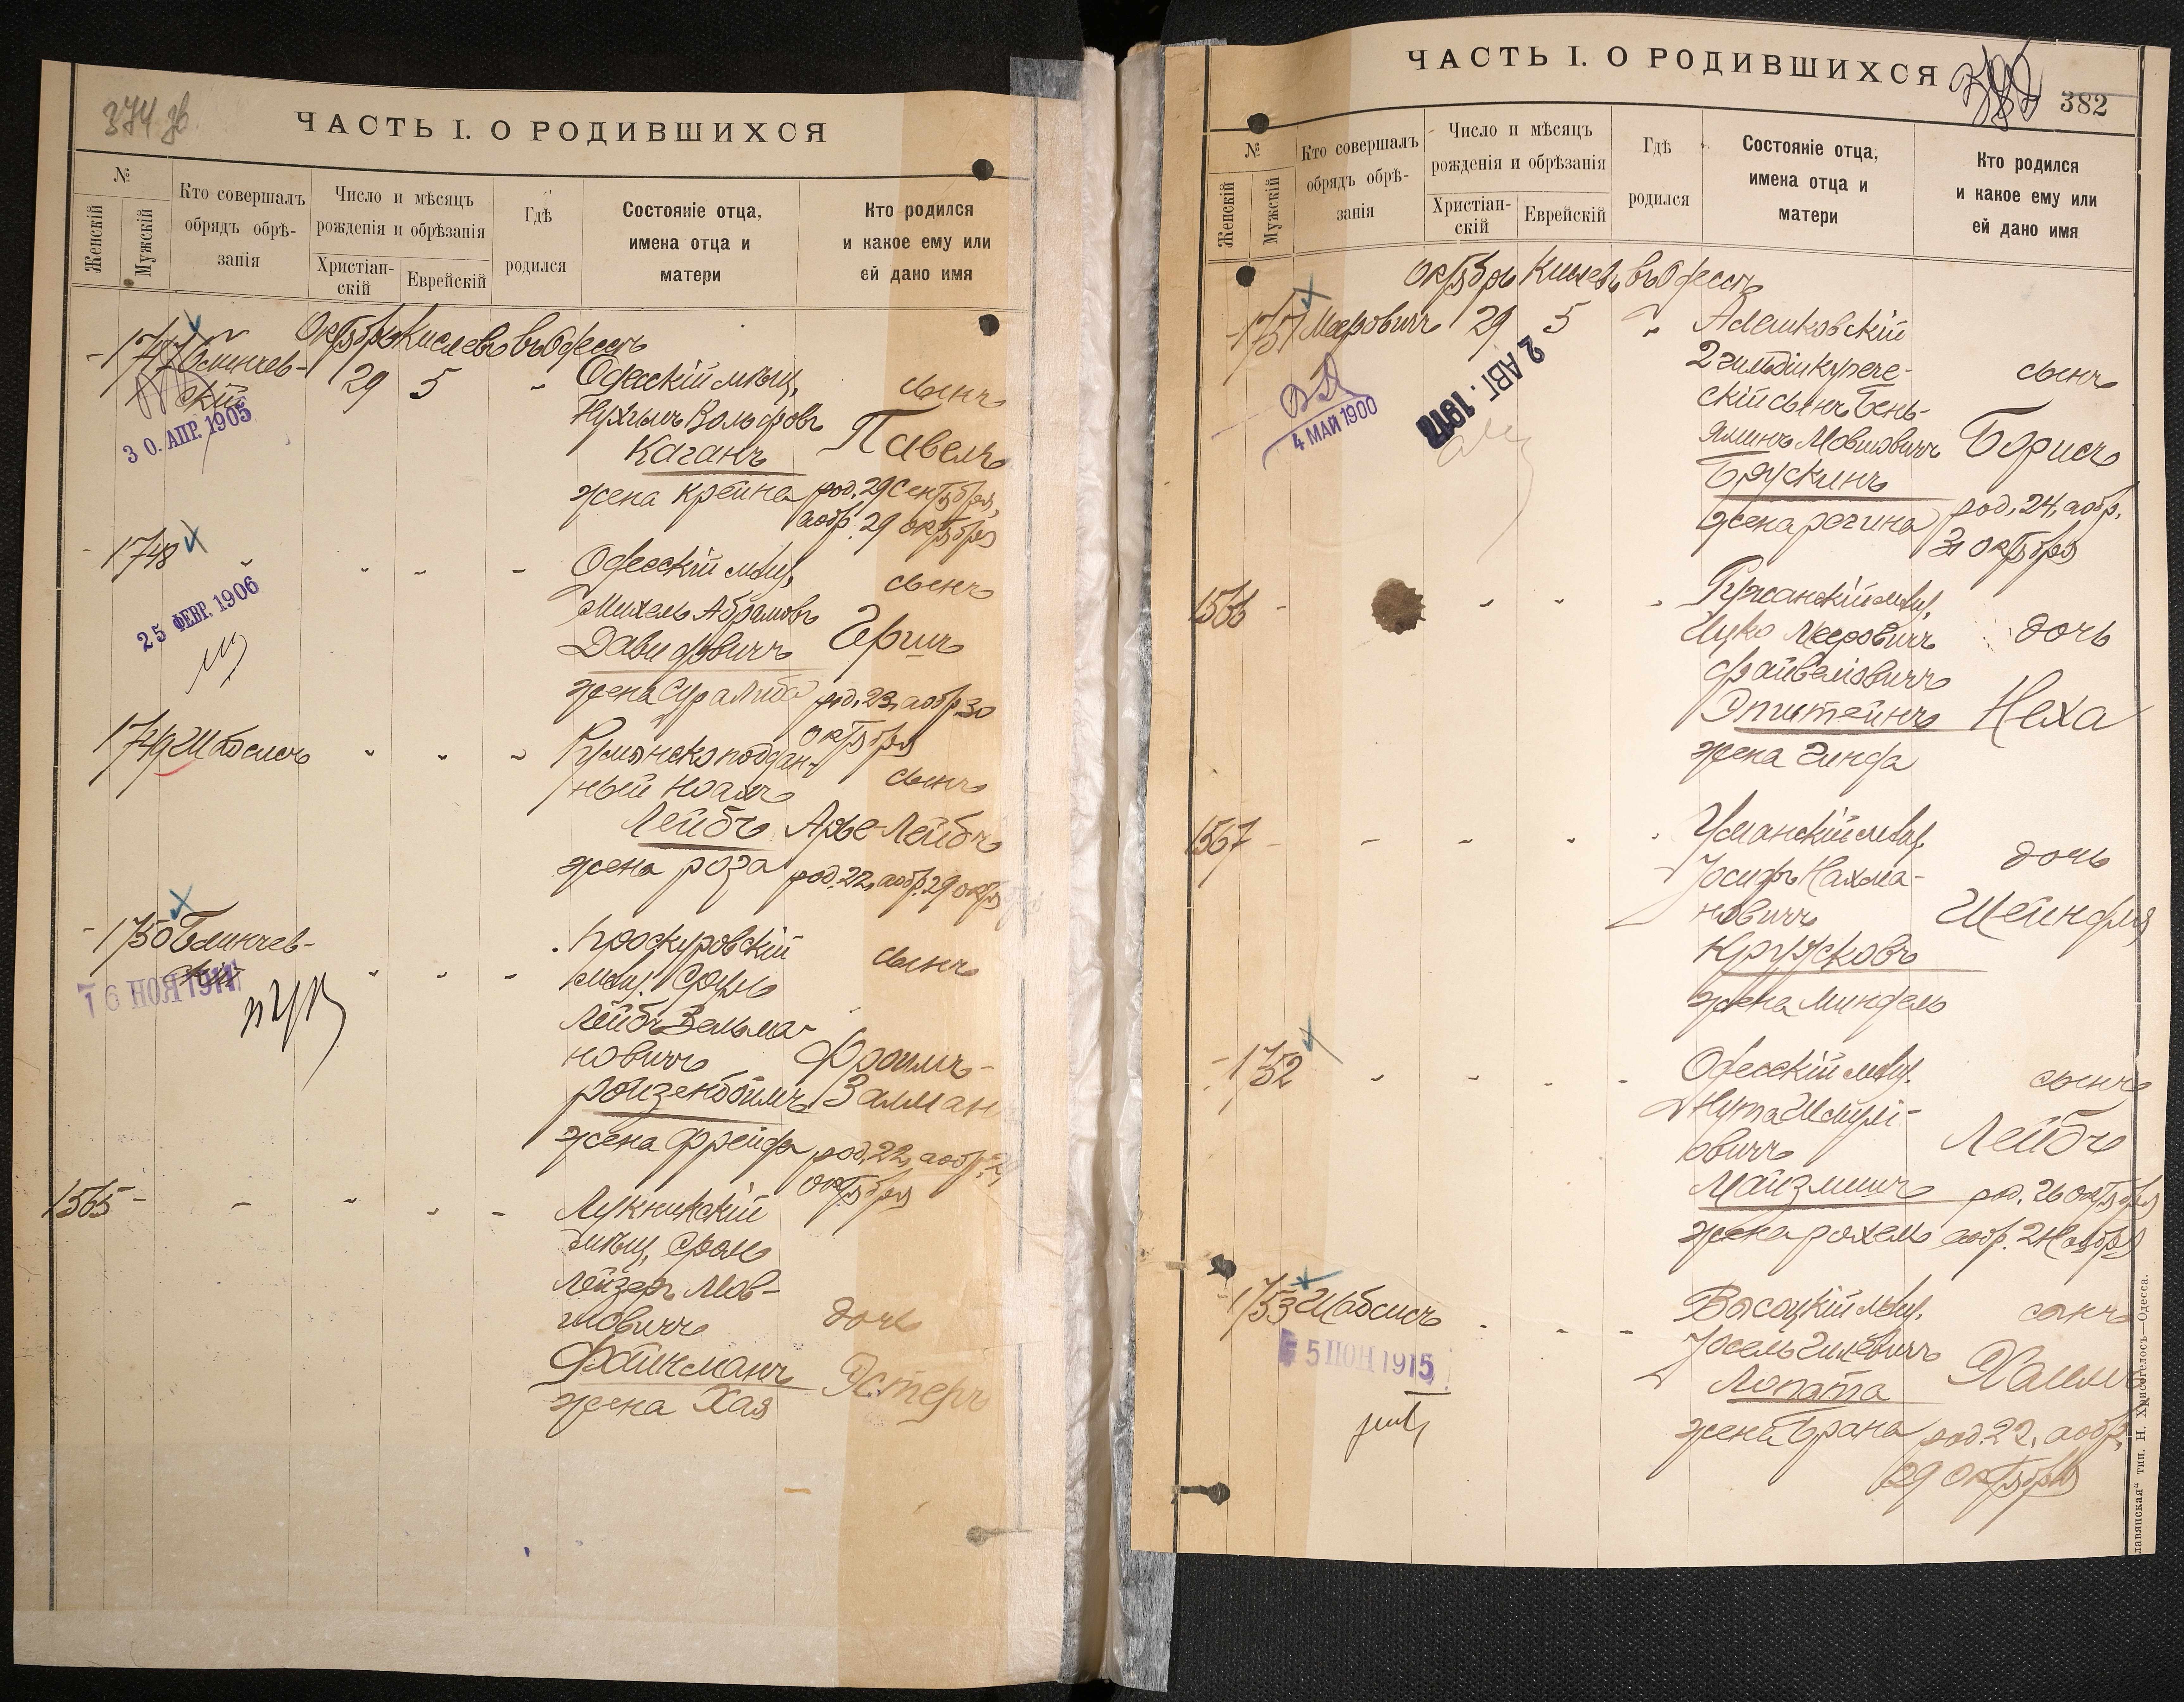 374 зв.
ЧАСТЬ I. О РОДИВШИХСЯ
№
Женскій
Мужскій
Кто совершалъ
обрядъ обрѣ-
занія
Число и мѣсяцъ
рожденія и обрѣзанія
Христіан-
скій
Еврейскій
Гдѣ
родился
Состояніе отца,
имена отца и
матери
Кто родился
и какое ему или
ей дано имя
Октябрь Кислевъ въ Одессѣ
1747 Блинчев-
скій
29 5 "
Одесскій мѣщ.
Нухымъ Вольфовъ
Каганъ
жена Крейна
сынъ
Павелъ
род. 29 Сентября,
а обр. 29 октября
30. АПР. 1905
1748 " " " "
Одесскій мѣщ.
Михель Абрамовъ
Давидовичъ
жена Сура Либа
сынъ
Герш
род. 23, а обр. 30
октября
25 ФЕВР. 1906
1749 Шабсисъ " " "
Румынскоподдан-
ный Ноахъ
Лейбъ
жена роза
сынъ
Арье-Лейбъ
род. 22, а обр. 29 октя
1750 Блинчев-
скій " " "
Проскуровскій
мѣщ. Сруль
Лейбъ Зельма-
новичъ
Ройзенбоймъ
жена Фрейда
сынъ
Фроимъ-
Залман
род. 22, а обр. 29
октября
16 НОЯ 1911
1565 - - " " -
Лукникскій
мѣщ. Срол
Лейзеръ Мов-
шовичъ
Файнманъ
жена Хая
дочь
Эстеръ
ЧАСТЬ I. О РОДИВШИХСЯ
382
№
Женскій
Мужскій
Кто совершалъ
обрядъ обрѣ-
занія
Число и мѣсяцъ
рожденія и обрѣзанія
Христіан-
скій
Еврейскій
Гдѣ
родился
Состояніе отца,
имена отца и
матери
Кто родился
и какое ему или
ей дано имя
Октябрь Кислевъ въ Одессѣ
1751 Меровичъ 29 5 "
Алешковскій
2 гильдіи купече-
скій сынъ Бень-
яминъ Мовшовичъ
Брускинъ
жена регина
сынъ
Борисъ
род. 24, а обр.
31 Октября
4 МАЙ 1900
2 АВГ. 1912
1566 - " " "
Ружанскій мѣщ.
Ицко Мееровичъ
Файвелiовичъ
Эпштейнъ
жена Гинда
дочь
Неха
1567 - - " " "
Усманскій мѣщ.
Іосифъ Нахма-
новичъ
Кружковъ
жена Миндель
дочь
Шейндля
1752 " " " "
Одесскій мѣщ.
Нута Шмулі-
овичъ
Майзлишъ
жена рохель
сынъ
Лейбъ
род. 26 октября
а обр. 2 Ноября
1753 Шабсисъ " " "
Высоцкій мѣщ.
Іосель
Лопата
жена Брана
сынъ
Хаим
род. 22, а обр.
29 октября
5 ІЮН 1915
лавянская“ тип. Н. Хрисогелосъ—Одесса.